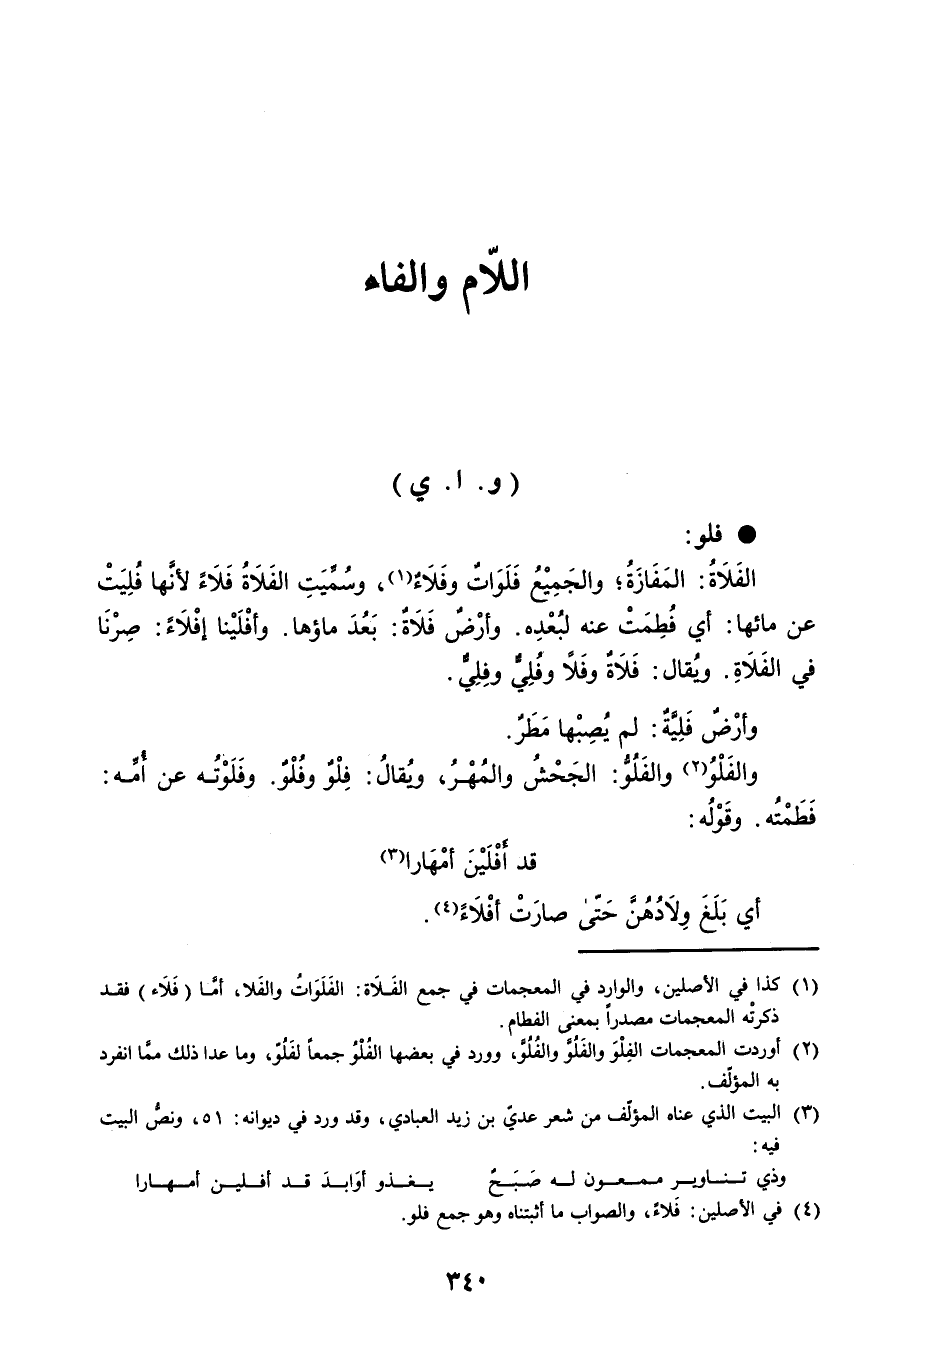 اللّام والفاء
( و. ا. ي )
● فلو:
الفَلَاةُ: المَفَازَةُ؛ والجَمِيْعُ فَلَوَاتٌ وفَلَاءٌ(١)، وسُمِّيَتِ الفَلَاةُ فَلَاءً لأنَّها فُلِيَتْ
عن مائها: أي فُطِمَتْ عنه لبُعْدِه. وأرْضٌ فَلَاةٌ: بَعُدَ ماؤها. وأفْلَيْنا إفْلَاءً: صِرْنَا
في الفَلَاةِ. ويُقال: فَلَاةٌ وفَلًا وفُلِيٌّ وفِلِيٌّ.
وأرْضٌ فَلِيَّةٌ: لم يُصِبْها مَطَرٌ.
والفَلْوُ(٢) والفَلُوُّ: الجَحْشُ والمُهْرُ، ويُقالُ: فِلْوٌ وفُلْوٌ. وفَلَوْتُه عن أُمِّه:
فَطَمْتُه. وقَوْلُه:
قد أَفْلَيْنَ أمْهَارا(٣)
أي بَلَغَ وِلَادُهُنَّ حَتّىٰ صارَتْ أفْلَاءً(٤).
(١) كذا في الأصلين، والوارد في المعجمات في جمع الفَلاة: الفَلَوَاتُ والفَلا، أمَّا ( فَلَاء ) فقد
ذكرتْه المعجمات مصدراً بمعنى الفطام.
(٢) أوردت المعجمات الفِلْوَ والفَلُوَّ والفُلُوَّ، وورد في بعضها الفُلْوُ جمعاً لفَلُوّ، وما عدا ذلك ممَّا انفرد
به المؤلّف.
(٣) البيت الذي عناه المؤلّف من شعر عديّ بن زيد العبادي، وقد ورد في ديوانه: ٥١، ونصُّ البيت
فيه:
وذي تناوير ممعون له صَبَحٌ يغذو أوَابدَ قد أفلين أمهارا
(٤) في الأصلين: فَلاءً، والصواب ما أثبتناه وهو جمع فلو.
٣٤٠